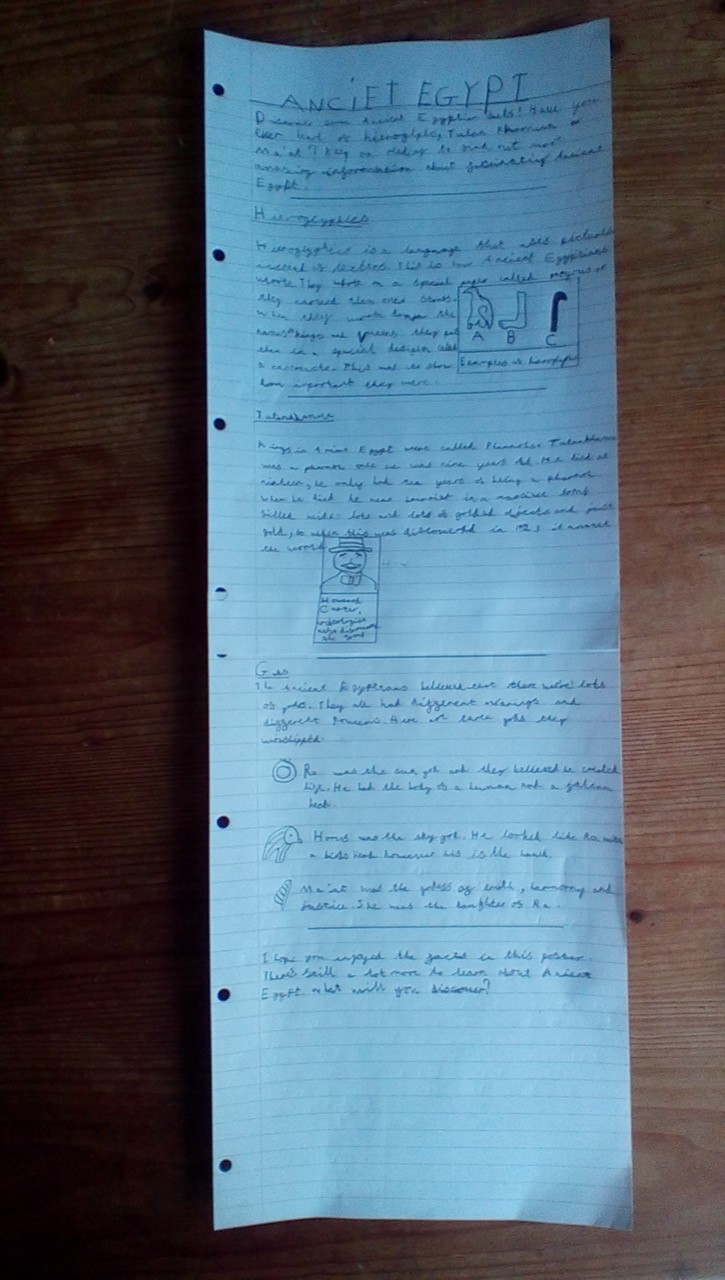 ANCIET EGYPT
Discover some Ancient Egyptian facts! Have you
ever of
Ma'at? Keep on to find out more
amazing information about fascinating Ancient
Egypt.
Hieroglyphics
Hieroglyphics is a language that uses pictures
instead of This is how Ancient Egyptians
wrote. They wrote on a special paper called or
they carved them onto
When they wrote the
names kings and they put
them in a special design
a This was to show
how important they were.
A B C
Examples of
Kings in Egypt were called
was a pharaoh once he was nine years old. He died at
he only had ten years of being a pharaoh
when he died he was in a massive tomb
filled with lots and lots of golden objects and
gold, so when this was discovered in it amazed
the world
Howard
Carter,
the tomb
Gods
The Ancient Egyptians believed that there were lots
of gods. They all had different meanings and
different Here are three gods they
worshipped.
Ra was the sun god and they believed he created
life. He had the body of a human and a
head.
Horus was the sky god. He looked like Ra with
a birds head however his is the
Ma'at was the godess of truth, harmony and
justice. She was the daughter of Ra.
I hope you enjoyed the facts in this poster.
There's still a lot more to learn about Ancient
Egypt what will you discover?